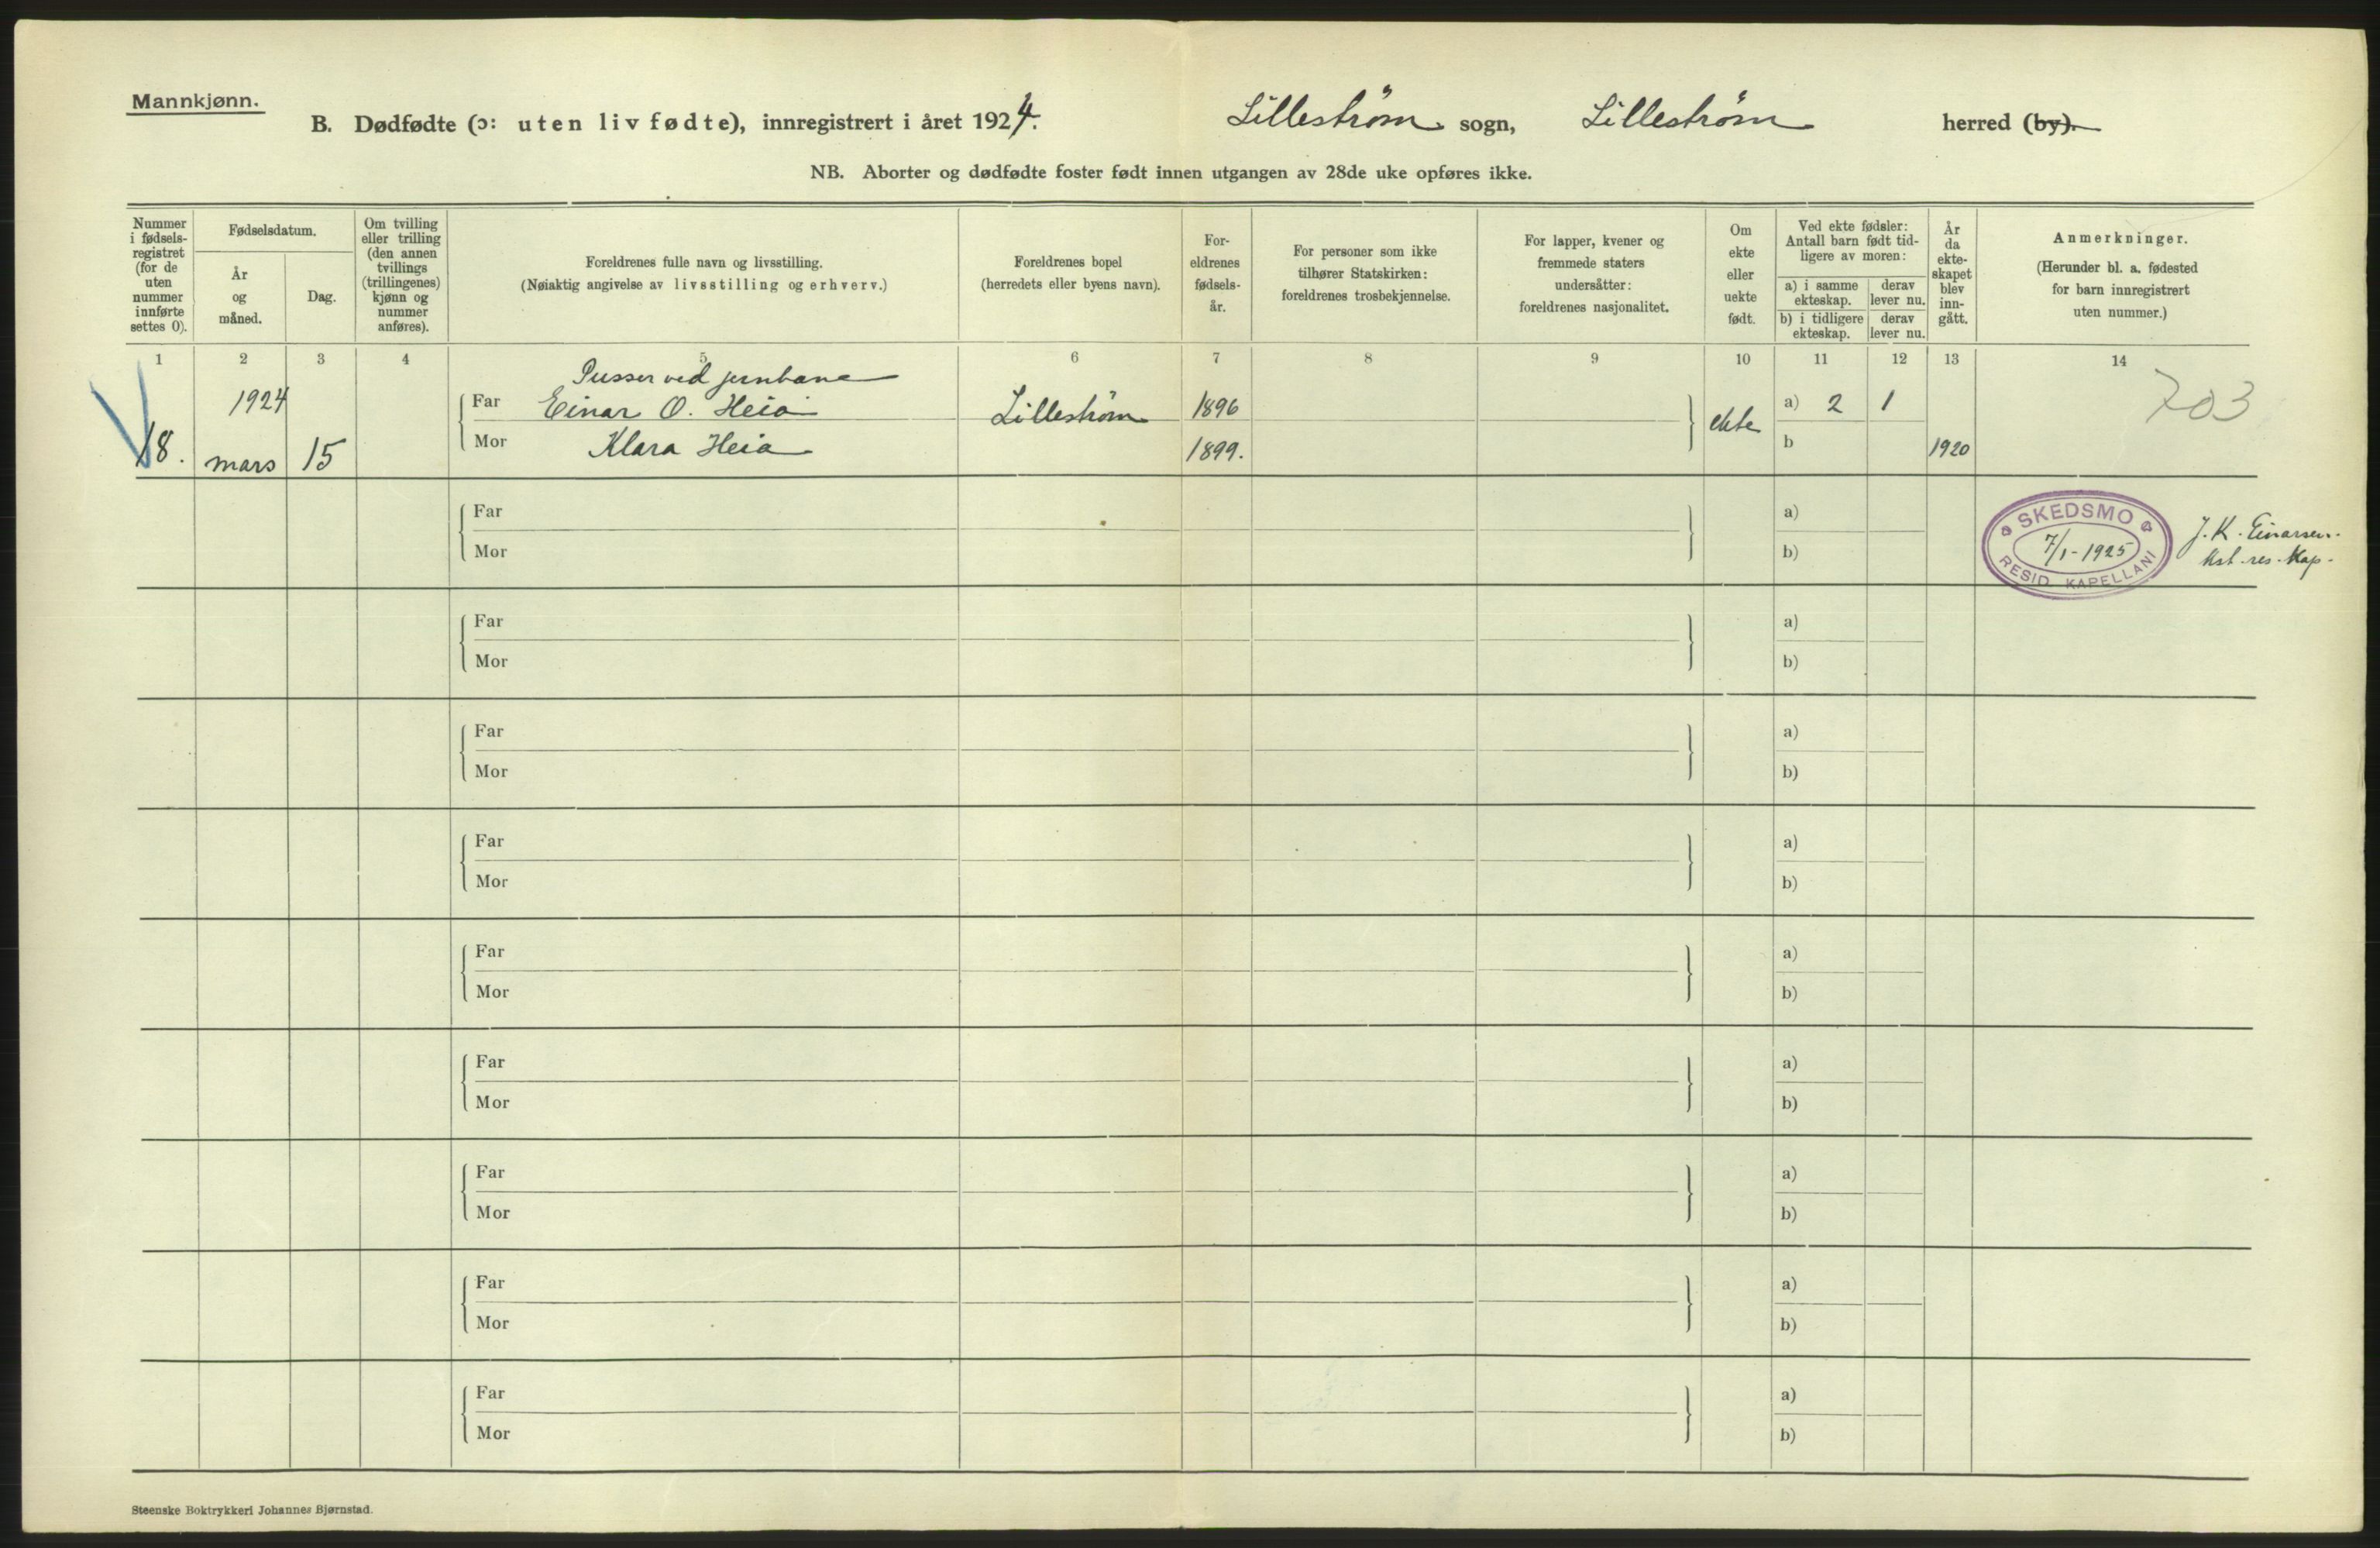 Mannkjønn.
B. Dødfødte (ɔ: uten liv fødte), innregistrert i året 1924. Lillestrøm sogn, Lillestrøm herred (by).
NB. Aborter og dødfødte foster født innen utgangen av 28de uke opføres ikke.
Nummer i fødsels-registret (for de uten nummer innførte settes 0).
Fødselsdatum.
År og måned.
Dag.
Om tvilling eller trilling (den annen tvillings (trillingenes) kjønn og nummer anføres).
Foreldrenes fulle navn og livsstilling.
(Nøiaktig angivelse av livsstilling og erhverv.)
Foreldrenes bopel
(herredets eller byens navn).
For-eldrenes fødsels-år.
For personer som ikke tilhører Statskirken: foreldrenes trosbekjennelse.
For lapper, kvener og fremmede staters undersåtter: foreldrenes nasjonalitet.
Om ekte eller uekte født.
Ved ekte fødsler: Antall barn født tid-ligere av moren:
a) i samme ekteskap.
derav lever nu.
b) i tidligere ekteskap.
derav lever nu.
År da ekte-skapet blev inn-gått.
Anmerkninger.
(Herunder bl. a. fødested for barn innregistrert uten nummer.)
1 2 3 4 5 6 7 8 9 10 11 12 13 14
Pusser ved jernbane
1924 Far Einar O. Heia Lillestrøm 1896 ekte a) 2 1 703
18. mars 15 Mor Klara Heia 1899. b 1920
Far a)
Mor b)
SKEDSMO
7/1-1925
RESID. KAPELLANI
J. K. Einarsen.
Kst. res. Kap.
Far a)
Mor b)
Far a)
Mor b)
Far a)
Mor b)
Far a)
Mor b)
Far a)
Mor b)
Far a)
Mor b)
Far a)
Mor b)
Far a)
Mor b)
Steenske Boktrykkeri Johannes Bjørnstad.